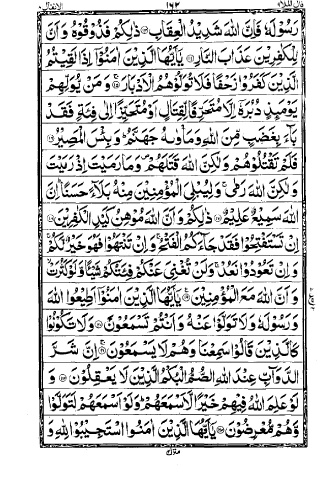 قال الملا ٩ ١٦٢ الانفال ٨
رَسُوْلَهٗ فَاِنَّ اللّٰهَ شَدِيْدُ الْعِقَابِ ۝ ذٰلِكُمْ فَذُوْقُوْهُ وَاَنَّ
لِلْكٰفِرِيْنَ عَذَابَ النَّارِ ۝ يٰۤاَيُّهَا الَّذِيْنَ اٰمَنُوْۤا اِذَا لَقِيْتُمُ
الَّذِيْنَ كَفَرُوْا زَحْفًا فَلَا تُوَلُّوْهُمُ الْاَدْبَارَ ۝ وَمَنْ يُّوَلِّهِمْ
يَوْمَئِذٍ دُبُرَهٗۤ اِلَّا مُتَحَرِّفًا لِّقِتَالٍ اَوْ مُتَحَيِّزًا اِلٰى فِئَةٍ فَقَدْ
بَآءَ بِغَضَبٍ مِّنَ اللّٰهِ وَمَاْوٰىهُ جَهَنَّمُ ؕ وَبِئْسَ الْمَصِيْرُ ۝
فَلَمْ تَقْتُلُوْهُمْ وَلٰكِنَّ اللّٰهَ قَتَلَهُمْ ۪ وَمَا رَمَيْتَ اِذْ رَمَيْتَ
وَلٰكِنَّ اللّٰهَ رَمٰى ۚ وَلِيُبْلِيَ الْمُؤْمِنِيْنَ مِنْهُ بَلَآءً حَسَنًا ؕ اِنَّ
اللّٰهَ سَمِيْعٌ عَلِيْمٌ ۝ ذٰلِكُمْ وَاَنَّ اللّٰهَ مُوْهِنُ كَيْدِ الْكٰفِرِيْنَ ۝
اِنْ تَسْتَفْتِحُوْا فَقَدْ جَآءَكُمُ الْفَتْحُ ۚ وَاِنْ تَنْتَهُوْا فَهُوَ خَيْرٌ لَّكُمْ ۚ
وَاِنْ تَعُوْدُوْا نَعُدْ ۚ وَلَنْ تُغْنِيَ عَنْكُمْ فِئَتُكُمْ شَيْئًا وَّلَوْ كَثُرَتْ ۙ
وَاَنَّ اللّٰهَ مَعَ الْمُؤْمِنِيْنَ ۝ يٰۤاَيُّهَا الَّذِيْنَ اٰمَنُوْۤا اَطِيْعُوا اللّٰهَ
وَرَسُوْلَهٗ وَلَا تَوَلَّوْا عَنْهُ وَاَنْتُمْ تَسْمَعُوْنَ ۝ وَلَا تَكُوْنُوْا
كَالَّذِيْنَ قَالُوْا سَمِعْنَا وَهُمْ لَا يَسْمَعُوْنَ ۝ اِنَّ شَرَّ
الدَّوَآبِّ عِنْدَ اللّٰهِ الصُّمُّ الْبُكْمُ الَّذِيْنَ لَا يَعْقِلُوْنَ ۝ وَ
لَوْ عَلِمَ اللّٰهُ فِيْهِمْ خَيْرًا لَّاَسْمَعَهُمْ ؕ وَلَوْ اَسْمَعَهُمْ لَتَوَلَّوْا
وَّهُمْ مُّعْرِضُوْنَ ۝ يٰۤاَيُّهَا الَّذِيْنَ اٰمَنُوا اسْتَجِيْبُوْا لِلّٰهِ وَ
منزل ٢